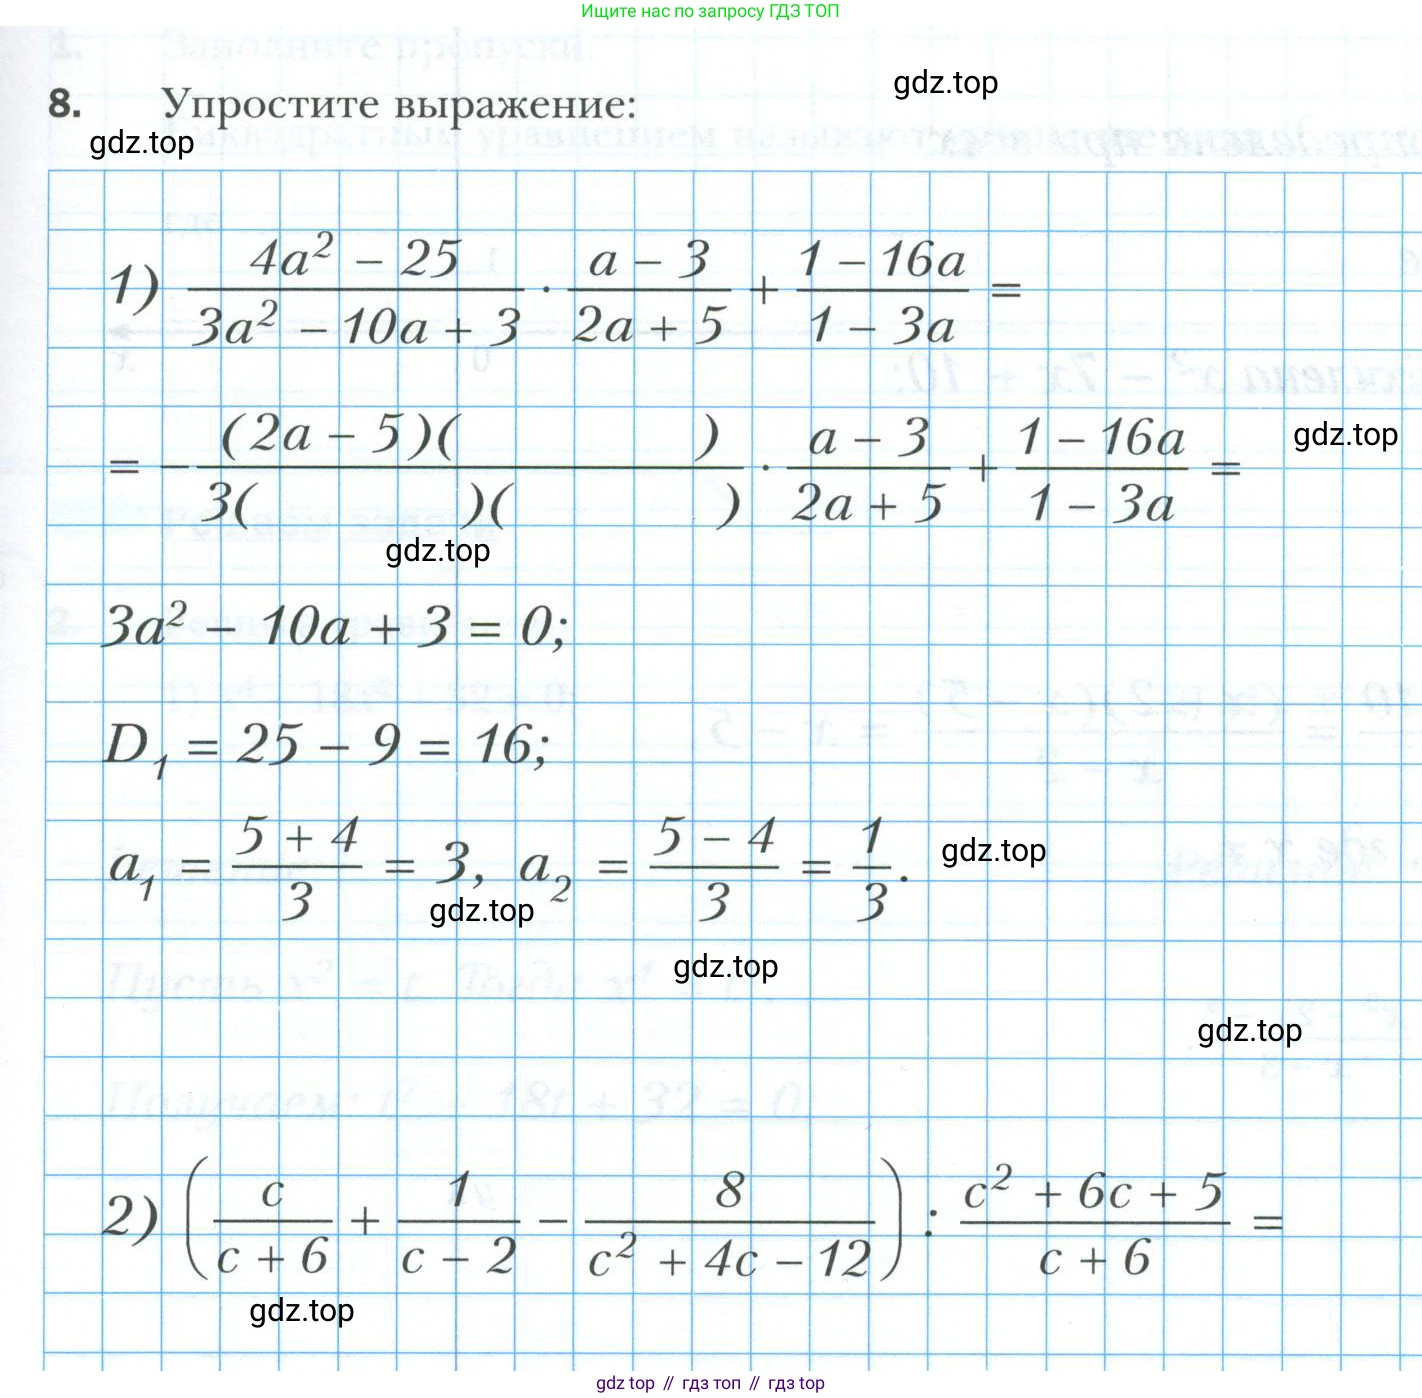 Ищите нас по запросу ГДЗ ТОП
8. Упростите выражение:
gdz.top
gdz.top
1) \frac{4a² − 25}{3a² − 10a + 3} · \frac{a − 3}{2a + 5} + \frac{1 − 16a}{1 − 3a} =
= \frac{(2a − 5)( )}{3( )( )} · \frac{a − 3}{2a + 5} + \frac{1 − 16a}{1 − 3a} =
gdz.top
gdz.top
3a² − 10a + 3 = 0;
D₁ = 25 − 9 = 16;
a₁ = \frac{5 + 4}{3} = 3, a₂ = \frac{5 − 4}{3} = \frac{1}{3}.
gdz.top
gdz.top
gdz.top
gdz.top
2) (\frac{c}{c + 6} + \frac{1}{c − 2} − \frac{8}{c² + 4c − 12}) : \frac{c² + 6c + 5}{c + 6} =
gdz.top
gdz top // гдз топ // гдз top